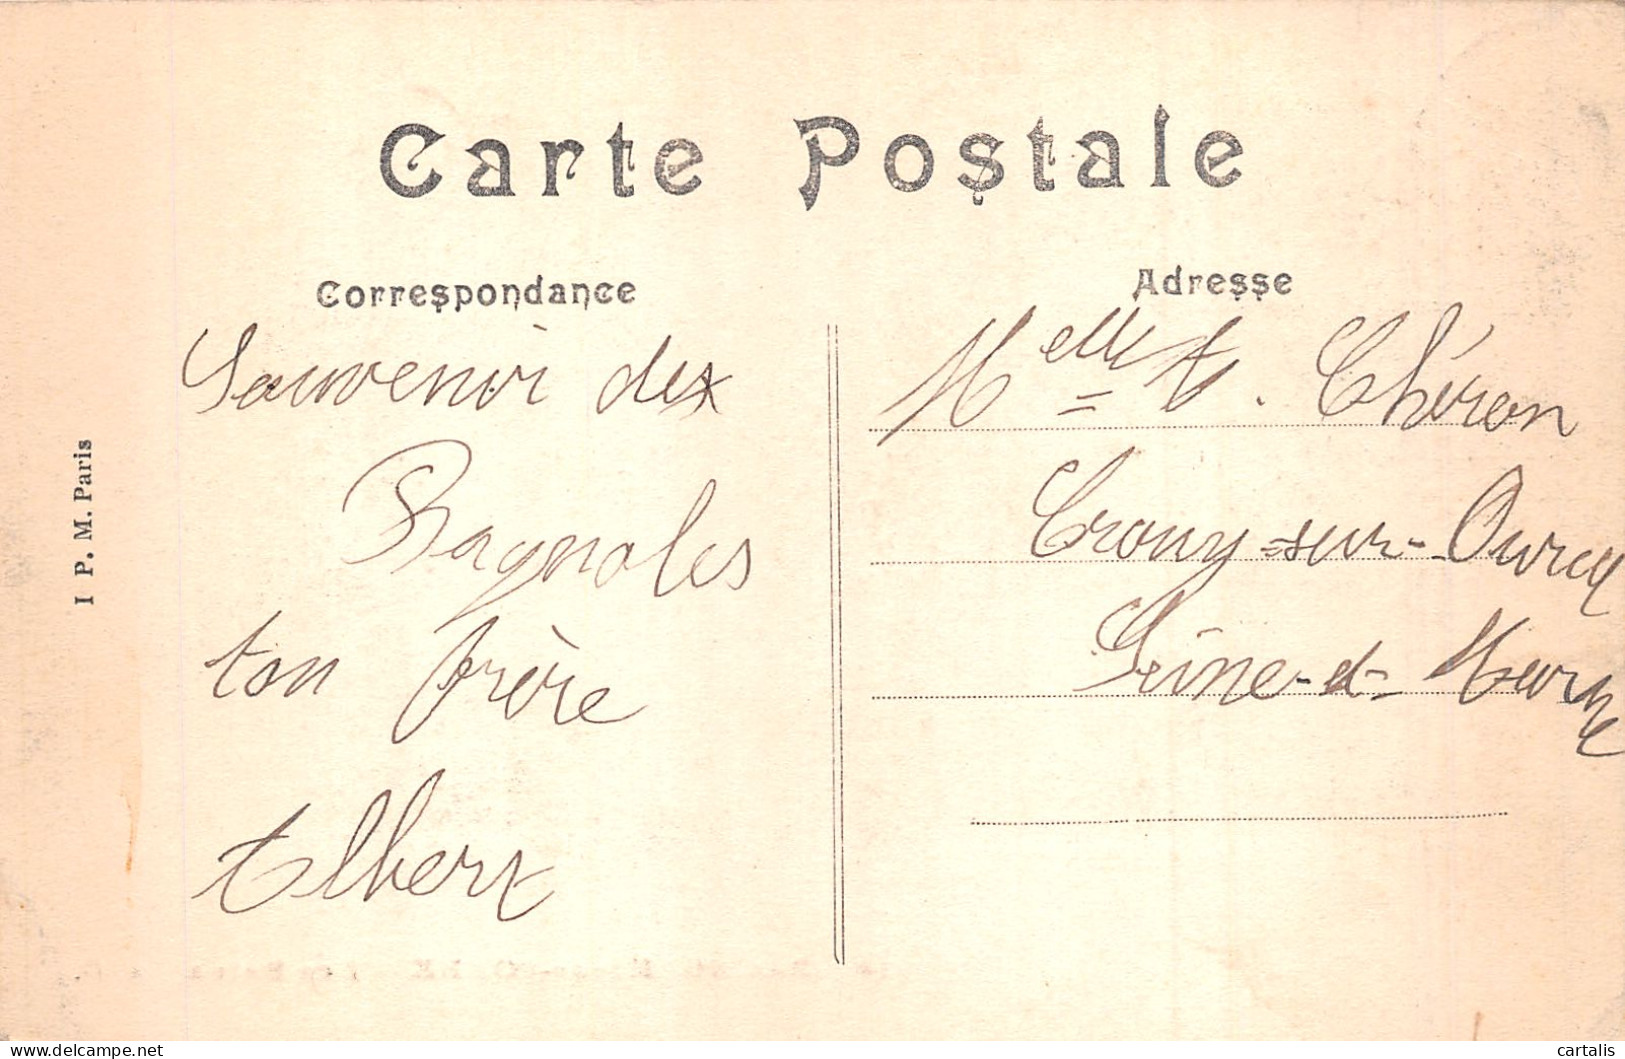 Carte Postale
Correspondance
Souvenir de
Bagnoles
ton frère
Albert
Adresse
Melle A. Théron
Crouy-sur-Ourcq
Seine-et-Marne
I P. M. Paris
cartalis